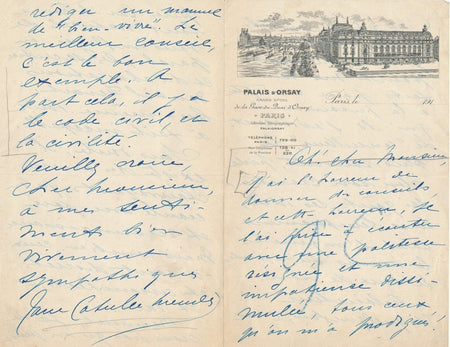 PALAIS D'ORSAY
GRAND HÔTEL
de la Gare du Quai d'Orsay
PARIS
PALAIORSAY
TÉLÉPHONE
PARIS.
Paris, le 191
Oh! cher Monsieur,
j'ai l'horreur de
donner des conseils
et cette horreur, je
l'ai prise à écouter
avec une politesse
résignée et une
impatience dissi-
mulée, tous ceux
qu'on m'a prodigués!
rédiger un manuel
de "bien-vivre". Le
meilleur conseil,
c'est le bon
exemple. A
part cela, il y a
le code civil, et
la civilité.
Veuillez croire
cher monsieur,
à mes senti-
ments bien
vivement
sympathiques
Jane Catulle Mendès